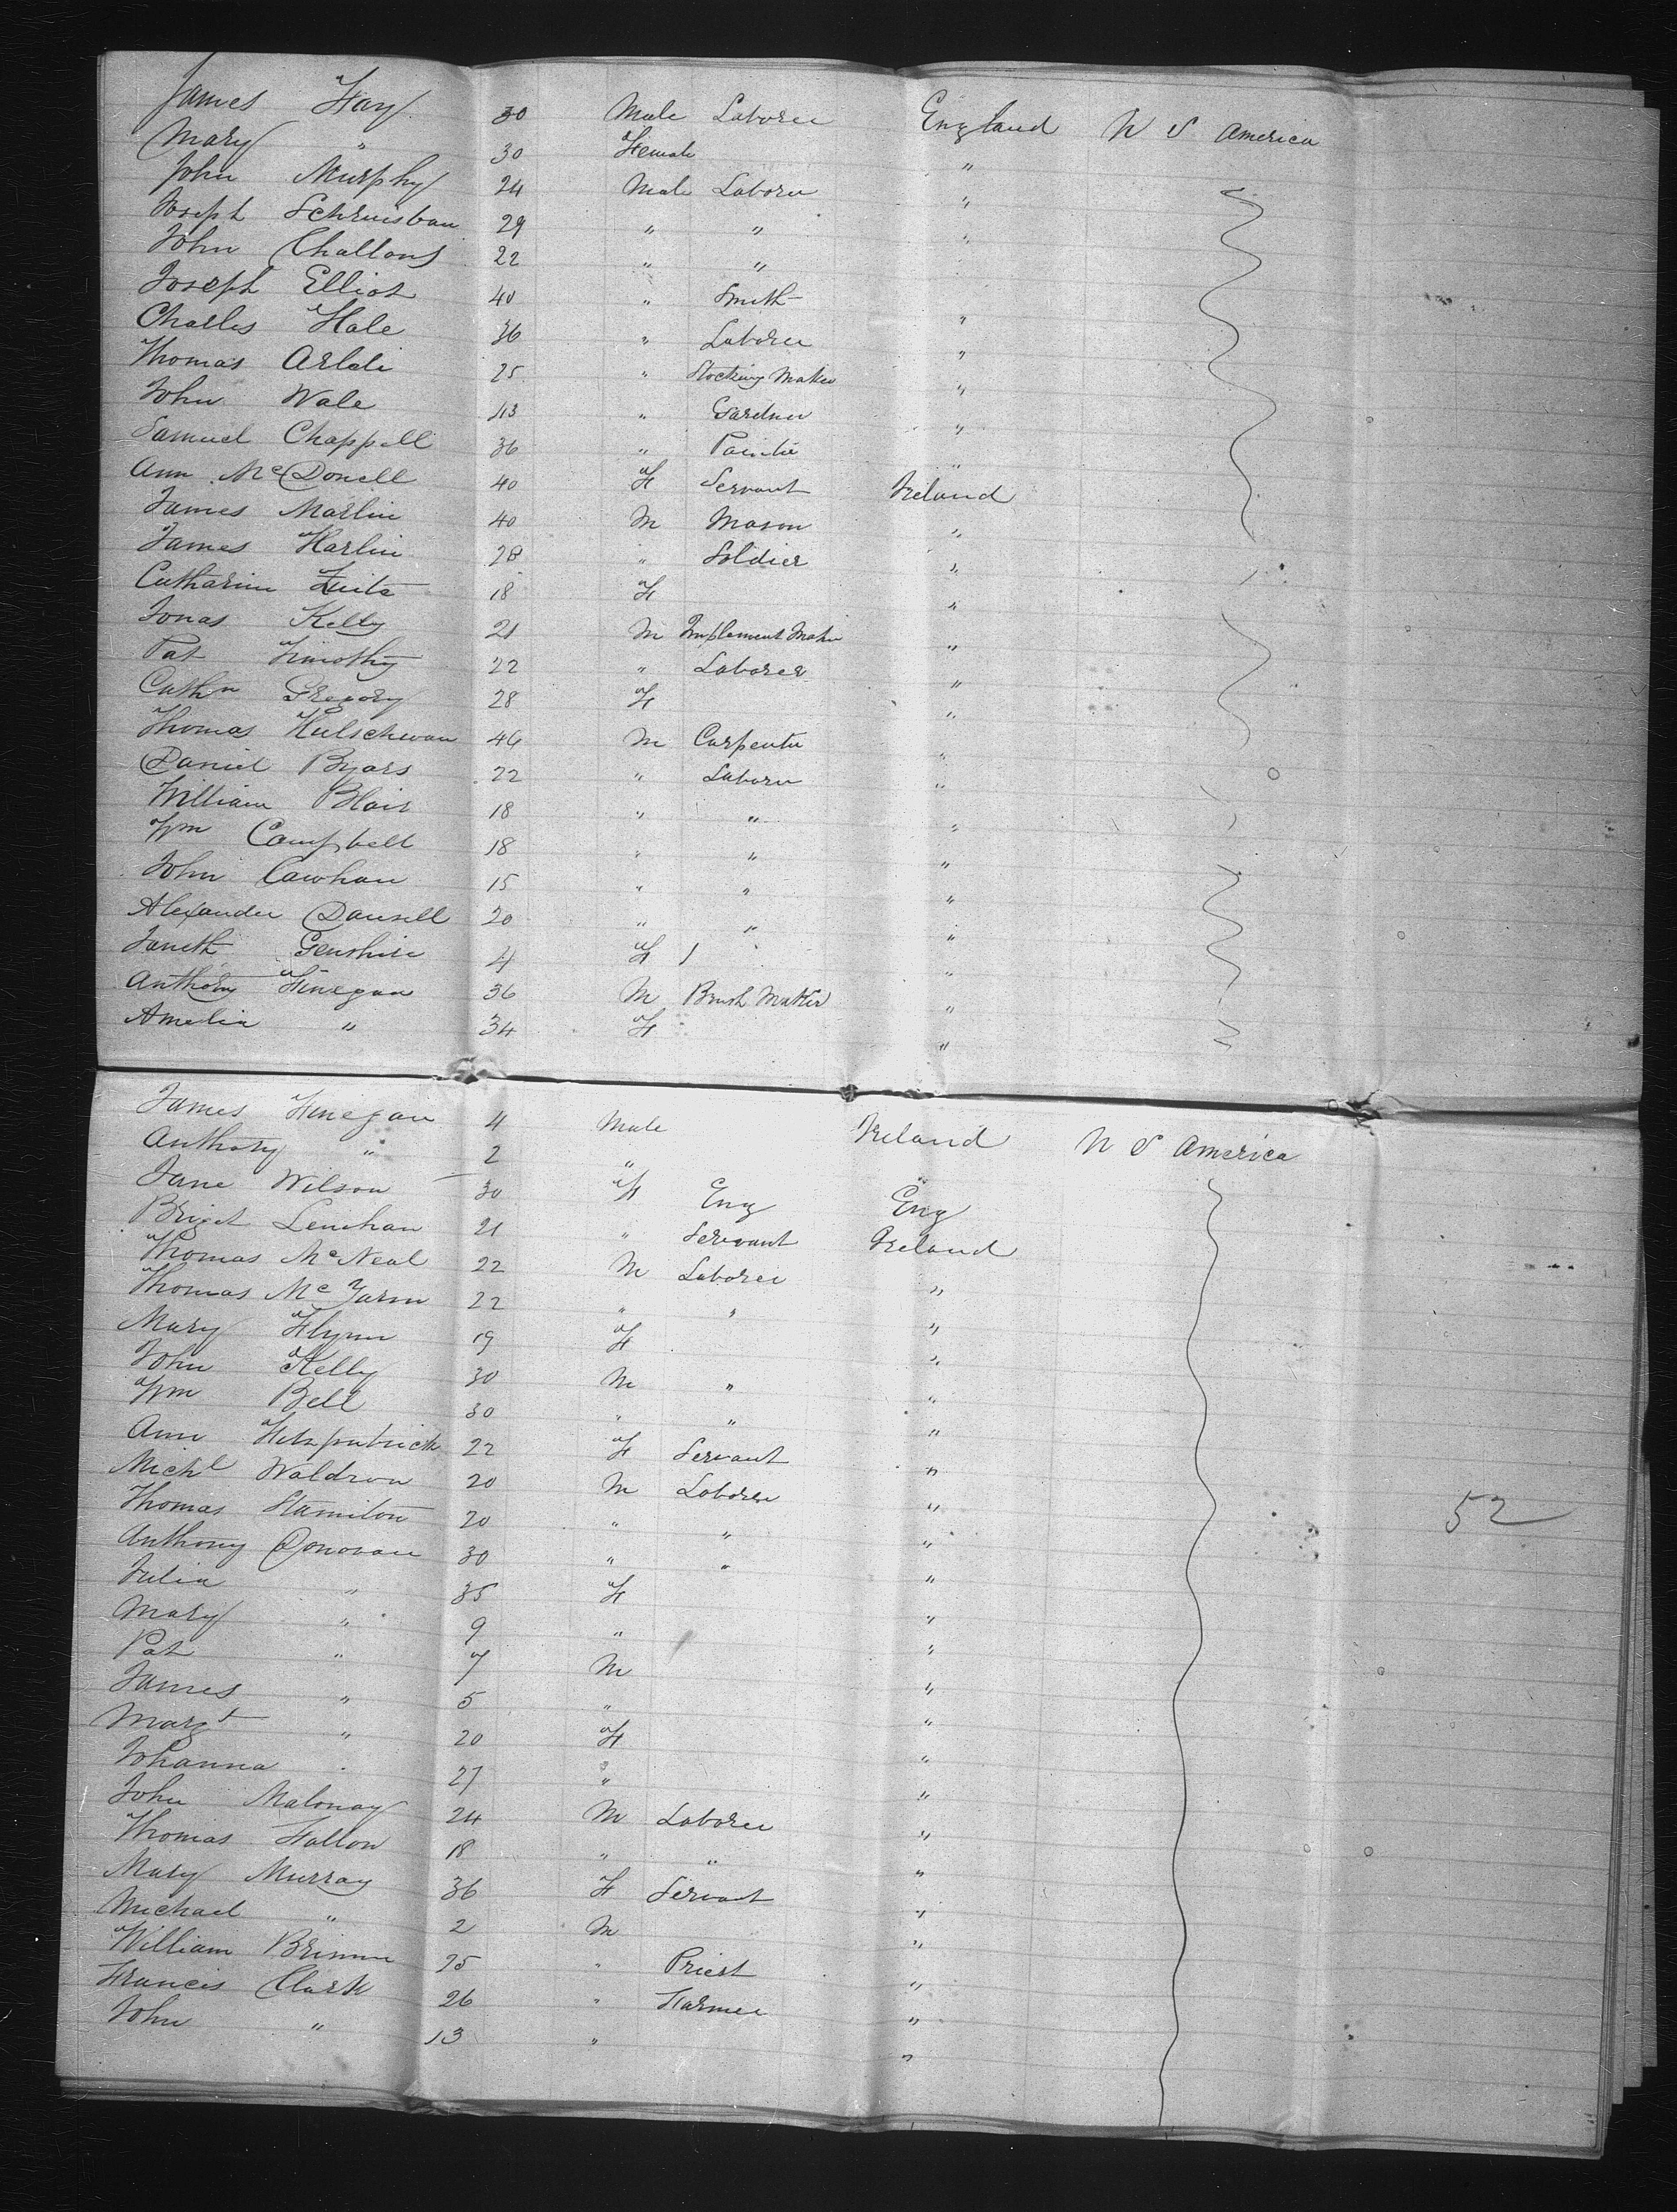 James Hay 30 Male Laborer England U S America
Mary " 30 Female "
John Murphy 24 Male Laborer "
Joseph 29 " " "
John Challons 22 " "
Joseph Elliot 40 " Smith "
Charles Hale 36 " Laborer "
Thomas 25 " Stocking Maker "
John Wale 43 " Gardner "
Samuel Chappell 36 " Painter "
Ann McDonell 40 F Servant Ireland
James Marlin 40 M Mason "
James Harlin 28 " Soldier "
Catharine 18 F "
Jonas Kelly 21 M Implement Maker "
Pat Timothy 22 " Laborer "
Cathn Gregory 28 F "
Thomas 46 M Carpenter "
Daniel Byars 22 " Laborer "
William Blair 18 " " "
Wm Campbell 18 " " "
John Cawhan 15 " " "
Alexander 20 " " "
Janeth 4 F "
Anthony Finegan 36 M Brush Maker "
Amelia " 34 F "
James Finegan 4 Male Ireland U S America
Anthony " 2 " "
Jane Wilson 30 F Eng Eng
Briget Lenehan 21 " Servant Ireland
Thomas McNeal 22 M Laborer "
Thomas 22 " " "
Mary Flynn 19 F "
John Kelly 30 M " "
Wm Bell 30 " " "
Ann Fitzpatrick 22 F Servant "
Michl Waldron 20 M Laborer "
Thomas Hamilton 20 " " " 52
Anthony Donovan 30 " " "
Julia " 35 F "
Mary " 9 " "
Pat " 7 M "
James " 5 " "
Margt " 20 F "
Johanna " 27 " "
John Malonay 24 M Laborer "
Thomas Fallon 18 " " "
Mary Murray 36 F Servant "
Michael " 2 M "
William 25 " Priest "
Francis Clark 26 " Farmer "
John " 13 " "